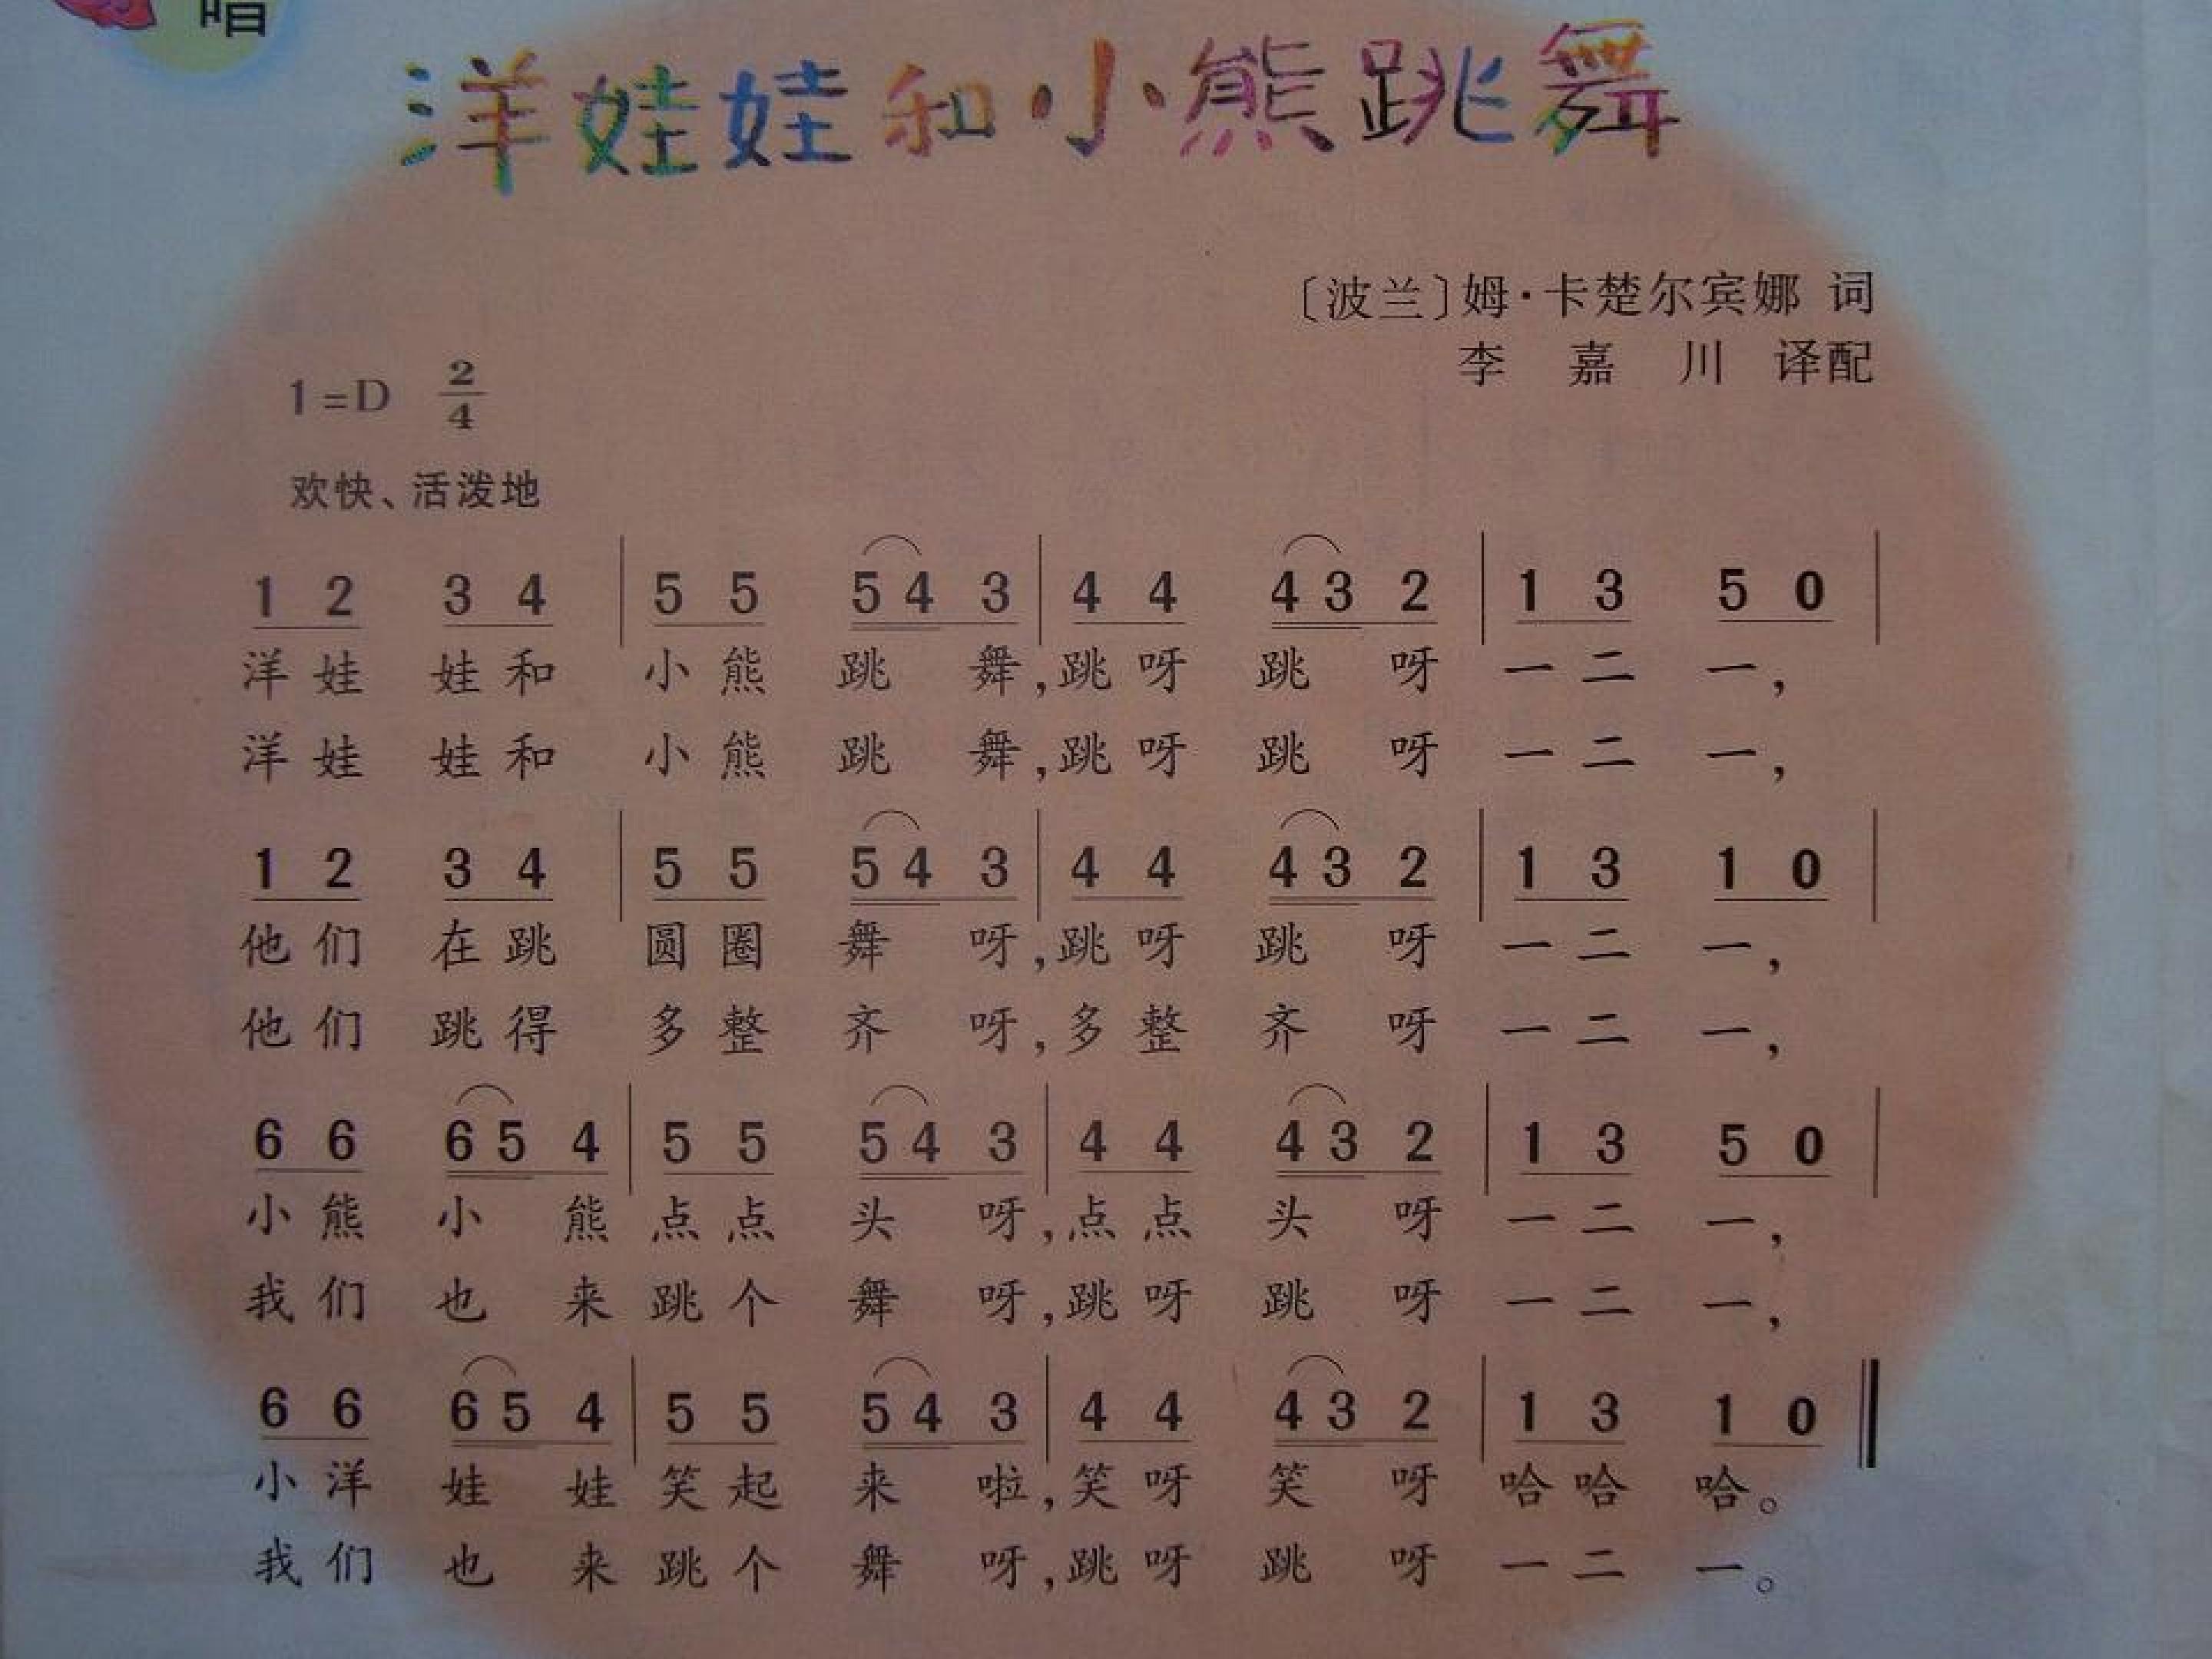 唱
洋娃娃和小熊跳舞
〔波兰〕姆·卡楚尔宾娜 词
李 嘉 川 译配
1=D 2/4
欢快、活泼地
1 2 3 4 | 5 5 5 4 3 | 4 4 4 3 2 | 1 3 5 0 |
洋娃 娃和 小熊 跳 舞,跳呀 跳 呀 一二 一,
洋娃 娃和 小熊 跳 舞,跳呀 跳 呀 一二 一,
1 2 3 4 | 5 5 5 4 3 | 4 4 4 3 2 | 1 3 1 0 |
他们 在跳 圆圈 舞 呀,跳呀 跳 呀 一二 一,
他们 跳得 多整 齐 呀,多整 齐 呀 一二 一,
6 6 6 5 4 | 5 5 5 4 3 | 4 4 4 3 2 | 1 3 5 0 |
小熊 小 熊 点点 头 呀,点点 头 呀 一二 一,
我们 也 来 跳个 舞 呀,跳呀 跳 呀 一二 一,
6 6 6 5 4 | 5 5 5 4 3 | 4 4 4 3 2 | 1 3 1 0 ‖
小洋 娃 娃 笑起 来 啦,笑呀 笑 呀 哈哈 哈。
我们 也 来 跳个 舞 呀,跳呀 跳 呀 一二 一。